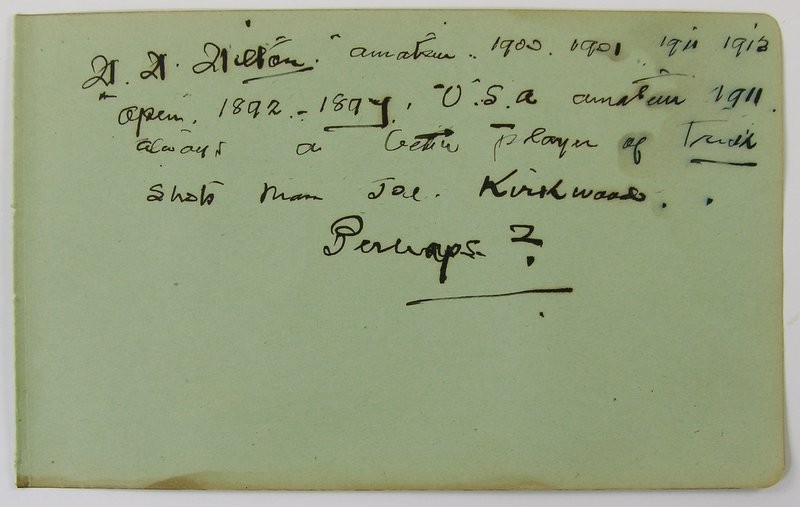 H. H. Hilton. "amateur. 1900. 1901. 1911 1913
"open. 1892 - 1897. "U.S.a amateur 1911.
always a better player of Trick
shots than Joe. Kirkwood.
Perhaps ?